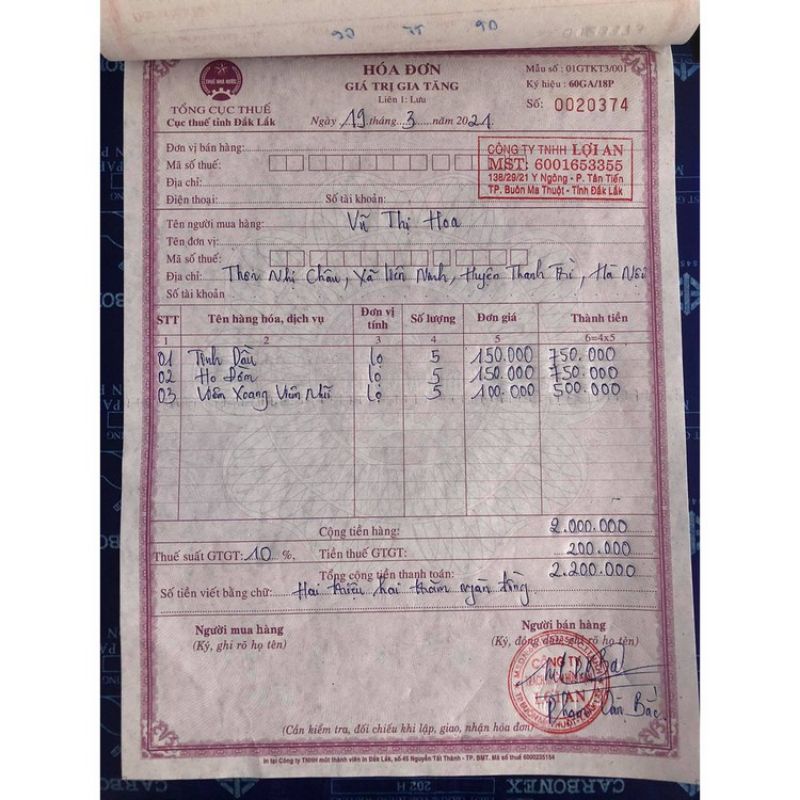 HÓA ĐƠN
GIÁ TRỊ GIA TĂNG
Liên 1: Lưu
Ngày 19 tháng 3 năm 2021
Mẫu số : 01GTKT3/001
Ký hiệu : 60GA/18P
Số: 0020374
THUẾ NHÀ NƯỚC
TỔNG CỤC THUẾ
Cục thuế tỉnh Đắk Lắk
Đơn vị bán hàng:
Mã số thuế:
Địa chỉ:
Điện thoại: Số tài khoản:
CÔNG TY TNHH LỢI AN
MST: 6001653355
138/29/21 Y Ngông - P. Tân Tiến
TP. Buôn Ma Thuột - Tỉnh Đắk Lắk
Tên người mua hàng: Vũ Thị Hoa
Tên đơn vị:
Mã số thuế:
Địa chỉ: Thôn Nhị Châu, Xã Liên Ninh, Huyện Thanh Trì, Hà Nội
Số tài khoản
STT Tên hàng hóa, dịch vụ Đơn vị tính Số lượng Đơn giá Thành tiền
1 2 3 4 5 6=4x5
01 Tinh Dầu lọ 5 150.000 750.000
02 Ho Đờm lọ 5 150.000 750.000
03 Viêm Xoang Viêm Mũi lọ 5 100.000 500.000
Cộng tiền hàng: 2.000.000
Thuế suất GTGT: 10 %, Tiền thuế GTGT: 200.000
Tổng cộng tiền thanh toán: 2.200.000
Số tiền viết bằng chữ: Hai triệu hai trăm ngàn đồng
Người mua hàng
(Ký, ghi rõ họ tên)
Người bán hàng
(Ký, đóng dấu, ghi rõ họ tên)
CÔNG TY
LỢI AN
Phạm Văn Bắc
(Cần kiểm tra, đối chiếu khi lập, giao, nhận hóa đơn)
In tại Công ty TNHH một thành viên In Đắk Lắk, số 45 Nguyễn Tất Thành - TP. BMT. Mã số thuế 6000235184
CARBONEX
202 H